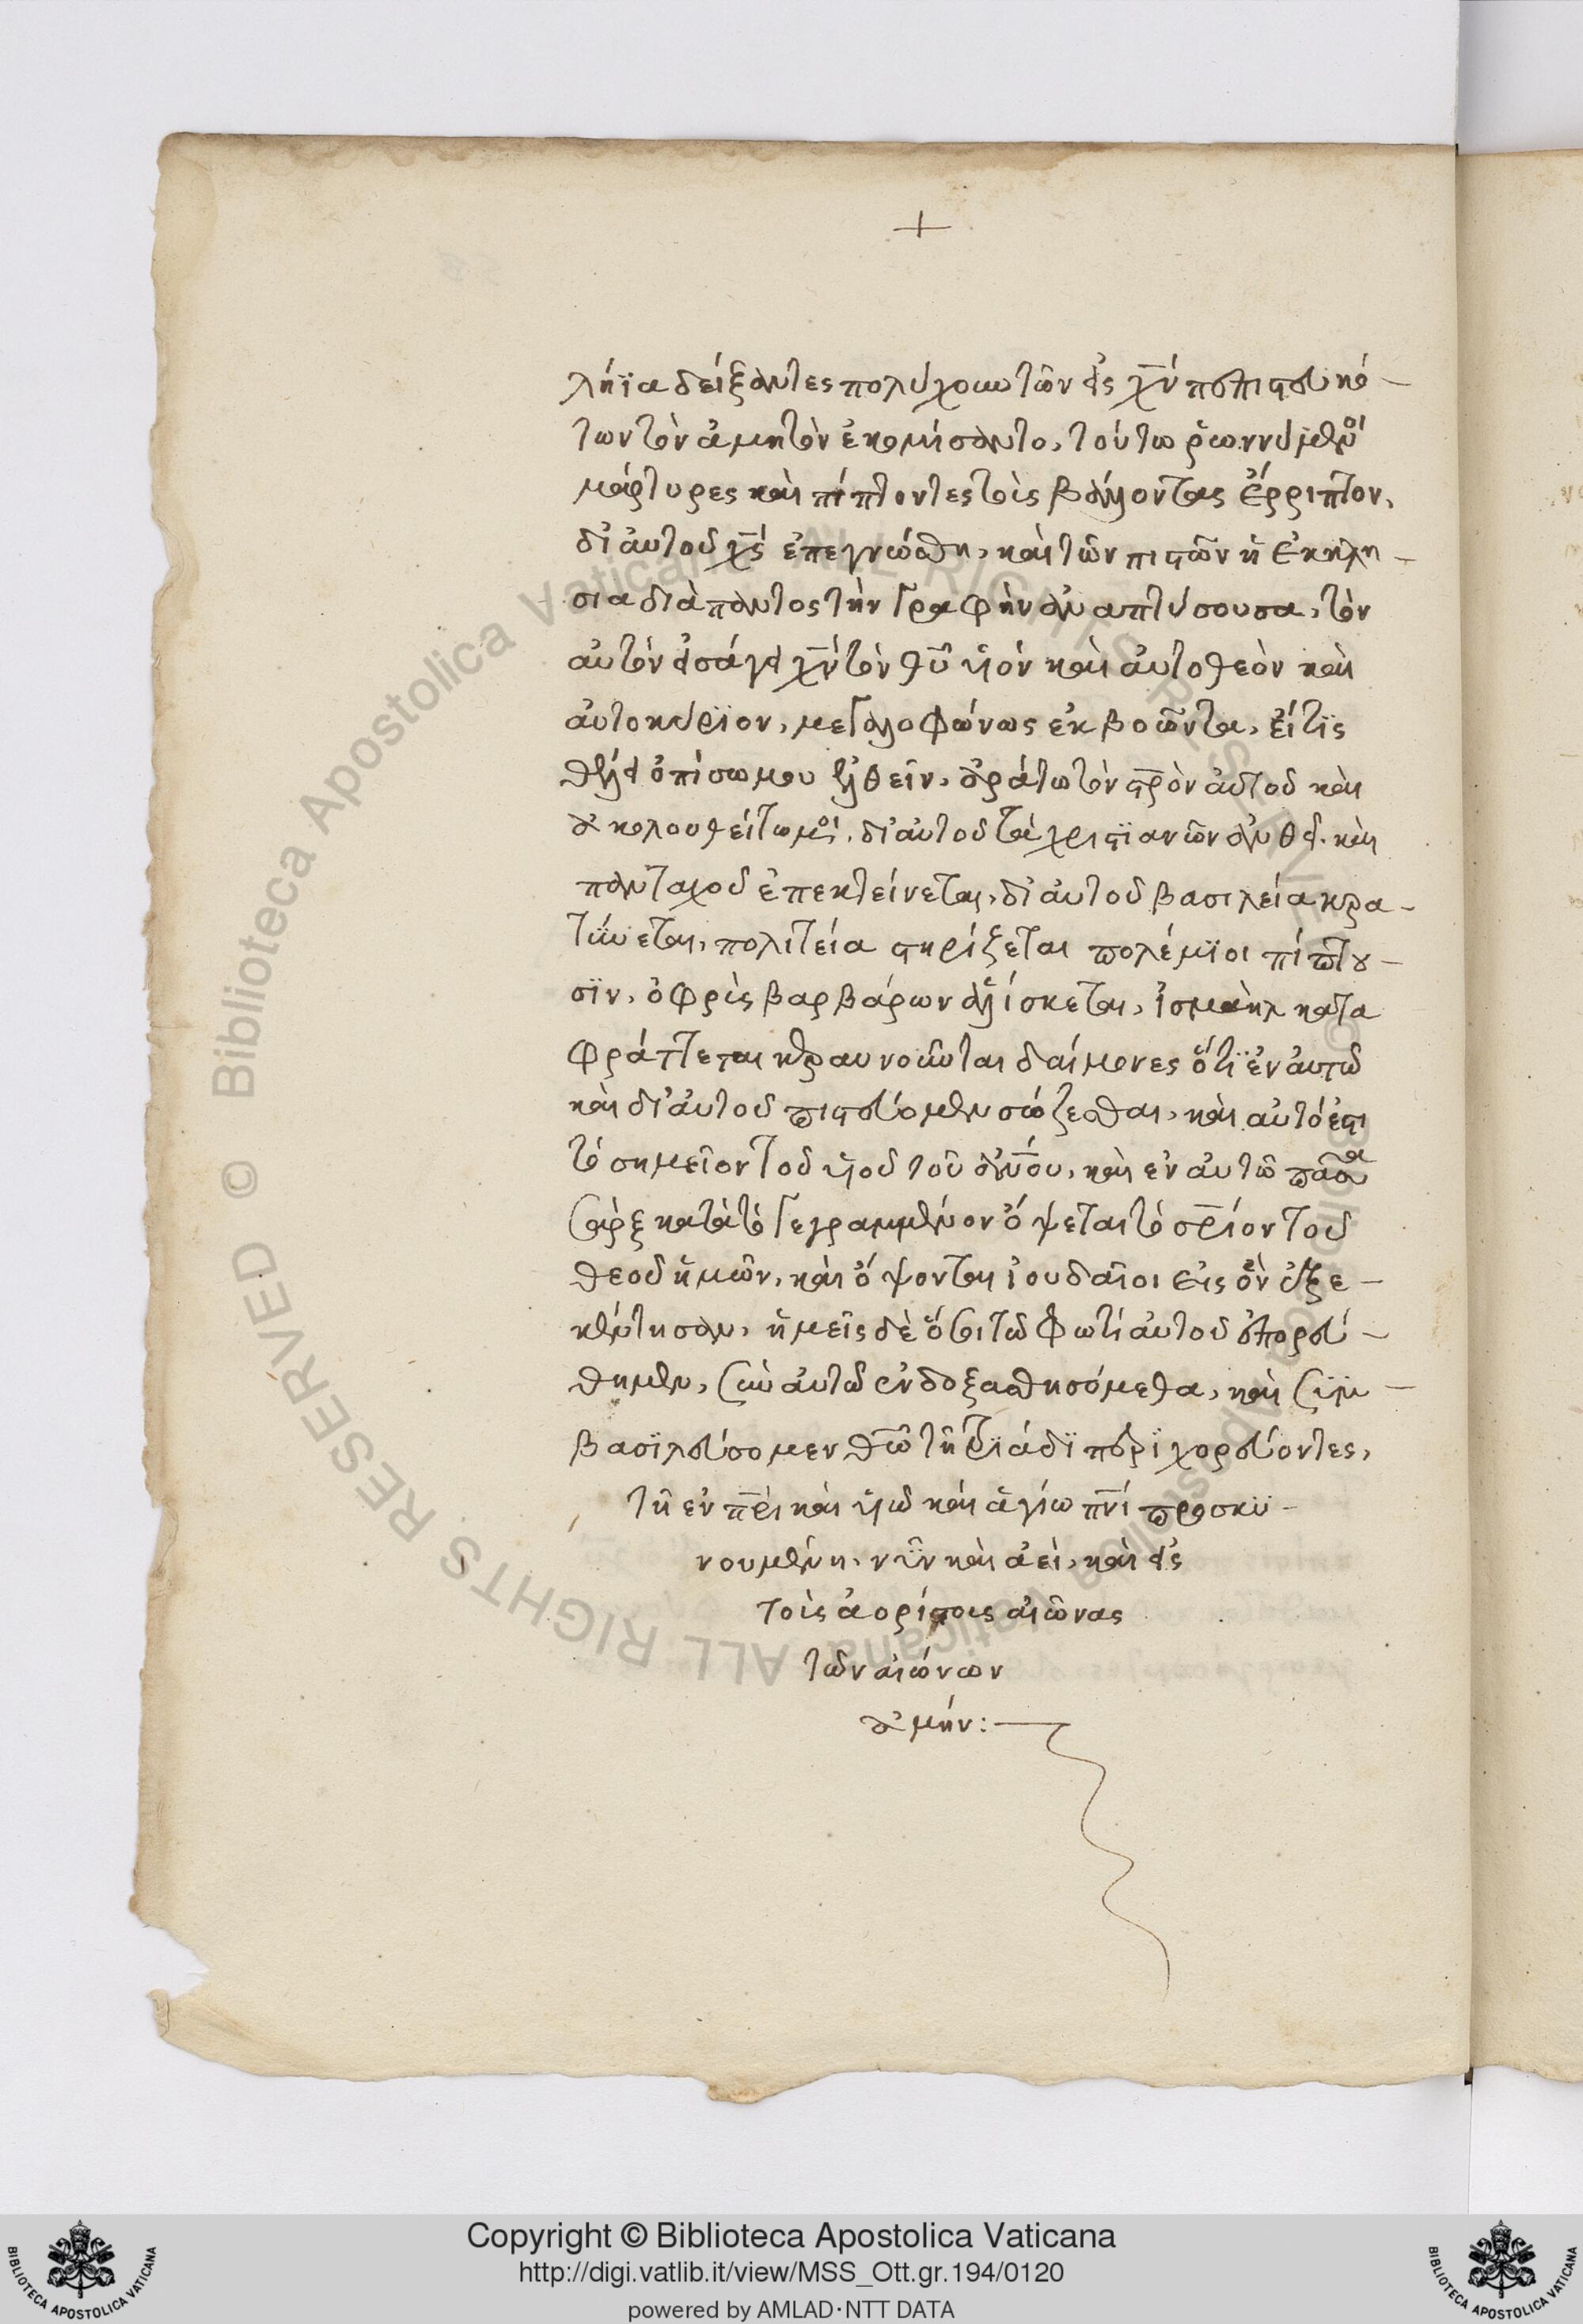 +
λήϊα δείξαντες πολύχοιω τῶν εἰς χν πεπιστευκό-
των τὸν ἀμητὸν ἐκομίσαντο, τούτω ῥωννύμενοι
μάρτυρες καὶ πίπτοντες τοὺς βάλλοντας ἔρριπτον,
δι αὐτοῦ χς ἐπεγνώσθη, καὶ τῶν πιστῶν ἡ ἐκκλη-
σια διὰ παντὸς τὴν γραφὴν αναπτύσουσα, τὸν
αὐτὸν εἰσάγει χν τὸν θυ υἱὸν καὶ αὐτοθεὸν καὶ
αὐτοκύριον, μεγαλοφώνως ἐκβοῶντα, εἴ τϊς
θέλει ὀπίσω μου ἐλθεῖν, ἀράτω τὸν στρὸν αὐτοῦ καὶ
ἀκολουθείτω μοι. δι αὐτοῦ τὰ χριστϊανῶν ἀνθεῖ. καὶ
πανταχοῦ ἐπεκτείνεται, δι αὐτοῦ βασιλεία κρα-
τύνεται, πολιτεία στηρίζεται πολέμϊοι πίπτου-
σϊν, ὀφρὺς βαρβάρων ἁλίσκεται, ἰσμαὴλ κατα
φράττεται κεραυνοῦνται δαίμονες ὅτϊ ἐν ἀυτῶ
καὶ δι αὐτοῦ πιστεύομεν σώζεσθαι, καὶ αὐτό ἐστι
τὸ σημεῖον τοῦ υἱοῦ τοῦ ανου, καὶ ἐν αὐτῶ πᾶσα
σὰρξ κατὰ τὸ γεγραμμένον ὄψεται τὸ σριον τοῦ
θεοῦ ἡμῶν, καὶ ὄψονται ἰουδαῖοι εἰς ὃν ἐξε-
κέντησαν, ἡμεῖς δὲ ὅσοι τῶ φωτὶ αὐτοῦ ἐπορεύ-
θημεν, σὺν αὐτῶ ἐνδοξασθησόμεθα, καὶ συμ-
βασϊλεύσομεν θω τῆ τρϊάδϊ περϊχορεύοντες,
τῆ ἐν πρι καὶ υἱῶ καὶ ἁγίω πνι προσκυ-
νουμένη, νῦν καὶ ἀεὶ, καὶ εἰς
τοὺς ἀορίστους αἰῶνας
τῶν αἰώνων
ἀμήν:
Copyright © Biblioteca Apostolica Vaticana
http://digi.vatlib.it/view/MSS_Ott.gr.194/0120
powered by AMLAD·NTT DATA
© Biblioteca Apostolica Vaticana ALL RIGHTS RESERVED
© Biblioteca Apostolica Vaticana ALL RIGHTS RESERVED
BIBLIOTECA APOSTOLICA VATICANA
BIBLIOTECA APOSTOLICA VATICANA